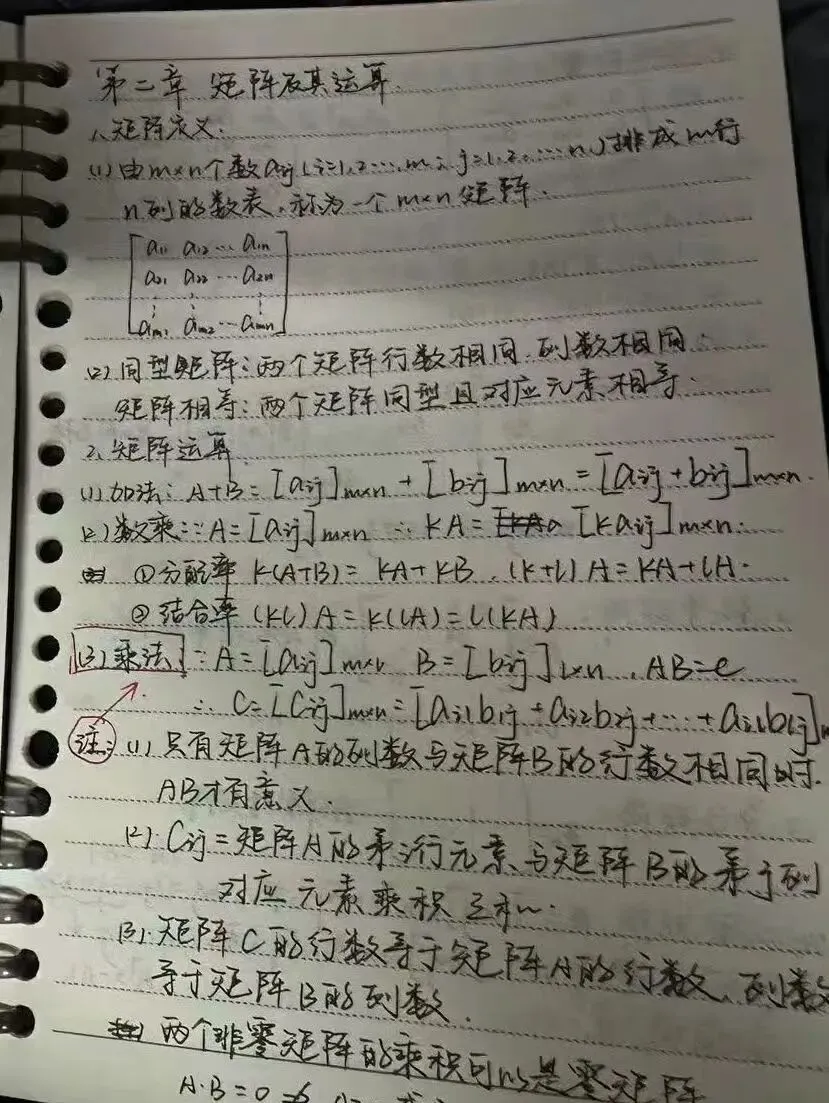 第二章 矩阵及其运算.
1、矩阵定义:
(1) 由m×n个数aij(i=1,2…,m; j=1,2,…n,)排成m行
n列的数表,称为一个m×n矩阵.
a11 a12 … a1n
a21 a22 … a2n
⋮ ⋮ ⋮
am1 am2 … amn
(2) 同型矩阵:两个矩阵行数相同,列数相同.
矩阵相等:两个矩阵同型且对应元素相等.
2、矩阵运算
(1) 加法: A+B=[aij]m×n+[bij]m×n=[aij+bij]m×n.
(2) 数乘:∵A=[aij]m×n ∴ KA= [kaij]m×n.
①分配率 K(A+B)=KA+KB,(K+L)A=KA+LA.
②结合率 (KL)A=K(LA)=L(KA)
(3) 乘法:∵A=[aij]m×l B=[bij]l×n,AB=C
∴ C=[Cij]m×n=[ai1b1j+ai2b2j+…+ailblj]m
注: (1) 只有矩阵A的列数与矩阵B的行数相同时.
AB才有意义.
(2) Cij=矩阵A的第i行元素与矩阵B的第j列
对应元素乘积之和.
(3) 矩阵C的行数等于矩阵A的行数,列数
等于矩阵B的列数.
两个非零矩阵的乘积可以是零矩阵
A·B=0